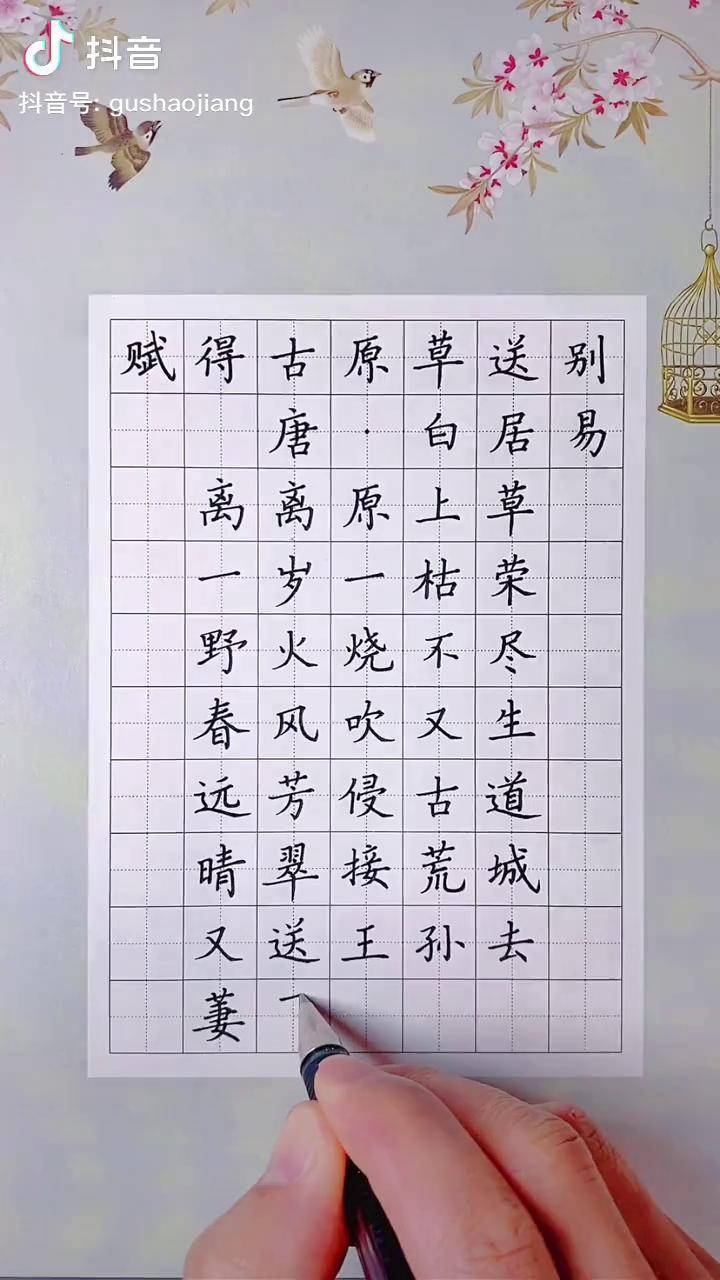 抖音
抖音号: gushaojiang
赋得古原草送别
唐·白居易
离离原上草
一岁一枯荣
野火烧不尽
春风吹又生
远芳侵古道
晴翠接荒城
又送王孙去
萋